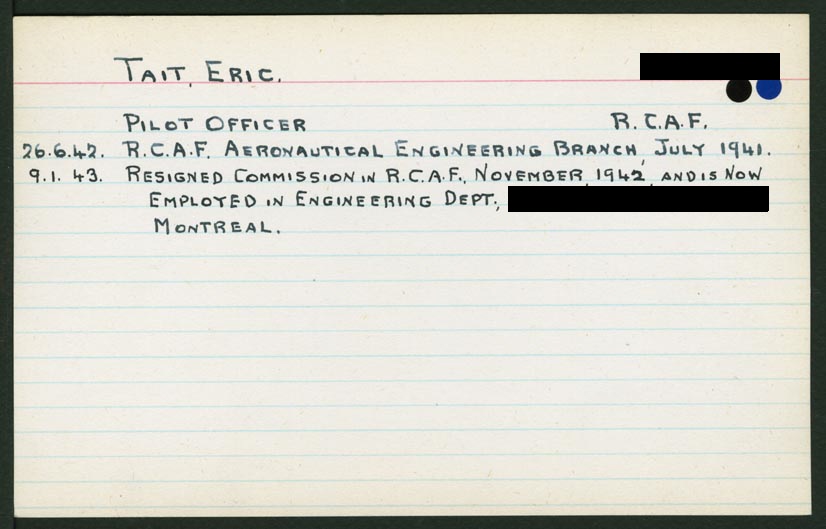 TAIT, ERIC.
PILOT OFFICER R.C.A.F.
26.6.42. R.C.A.F. AERONAUTICAL ENGINEERING BRANCH, JULY 1941.
9.1.43. RESIGNED COMMISSION IN R.C.A.F., NOVEMBER, 1942, AND IS NOW
EMPLOYED IN ENGINEERING DEPT.,
MONTREAL.